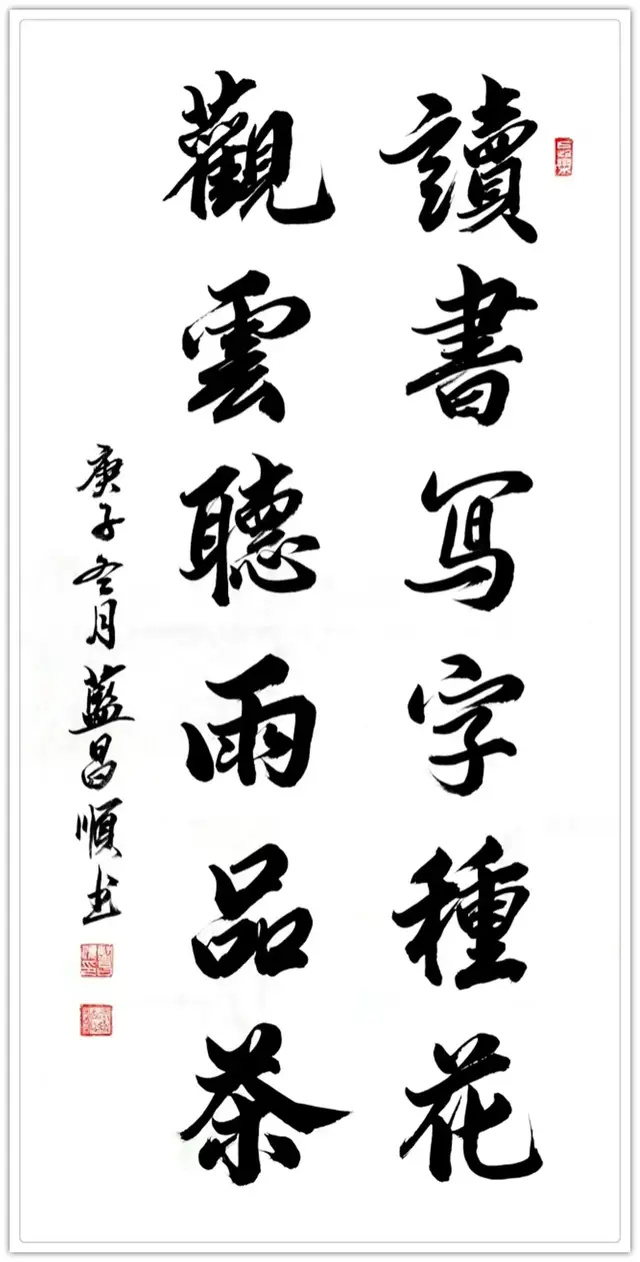 讀書写字種花
觀雲聽雨品茶
庚子冬月藍昌順书